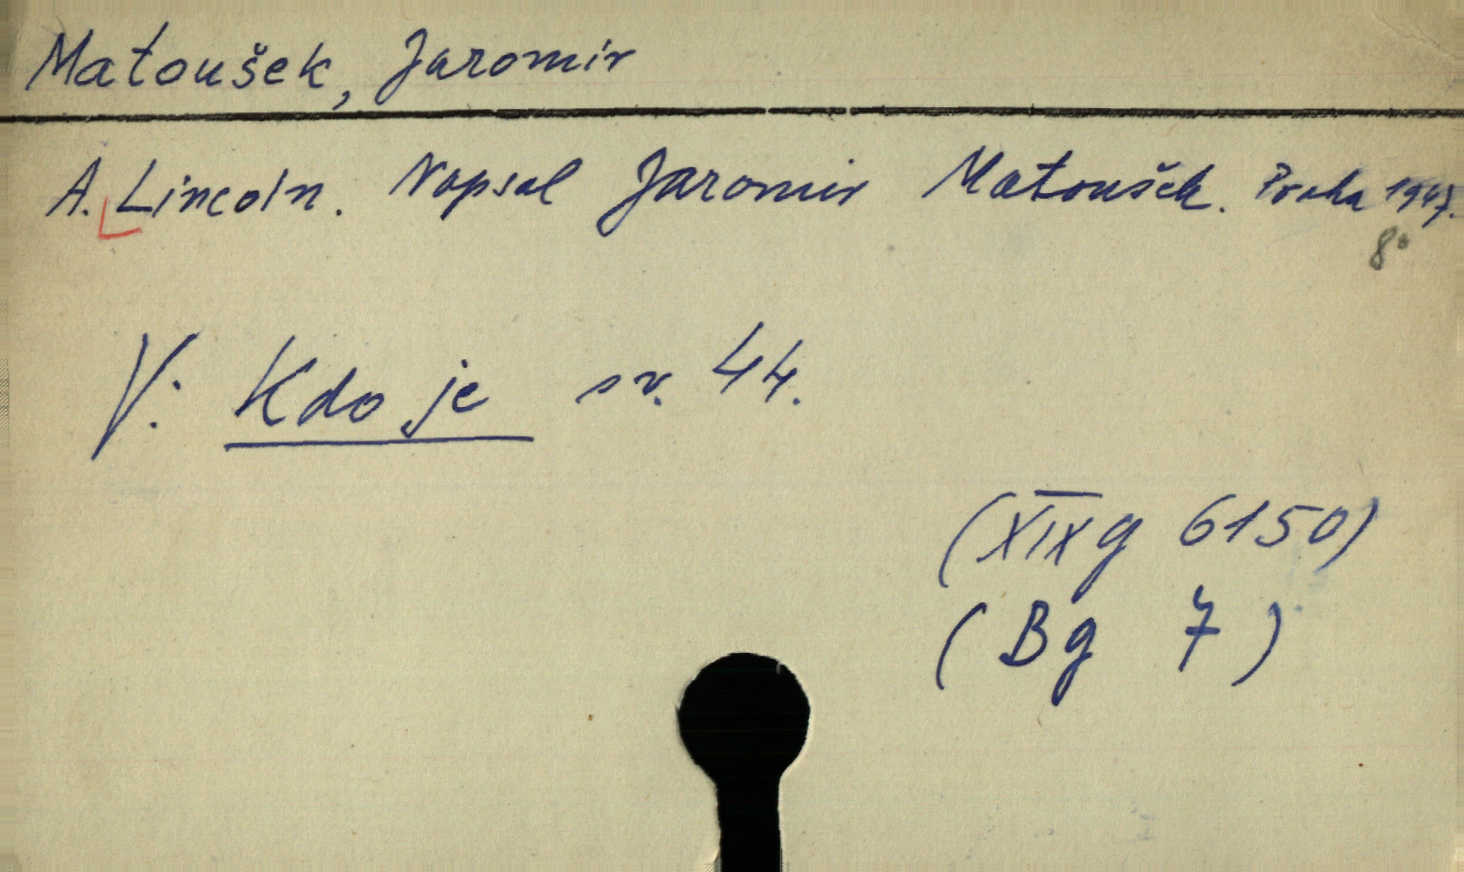 Matoušek, Jaromír
A. Lincoln. Napsal Jaromír Matoušek. Praha 1947.
8°
V: Kdo je sv. 44.
(XIX g 6150)
(Bg 7)